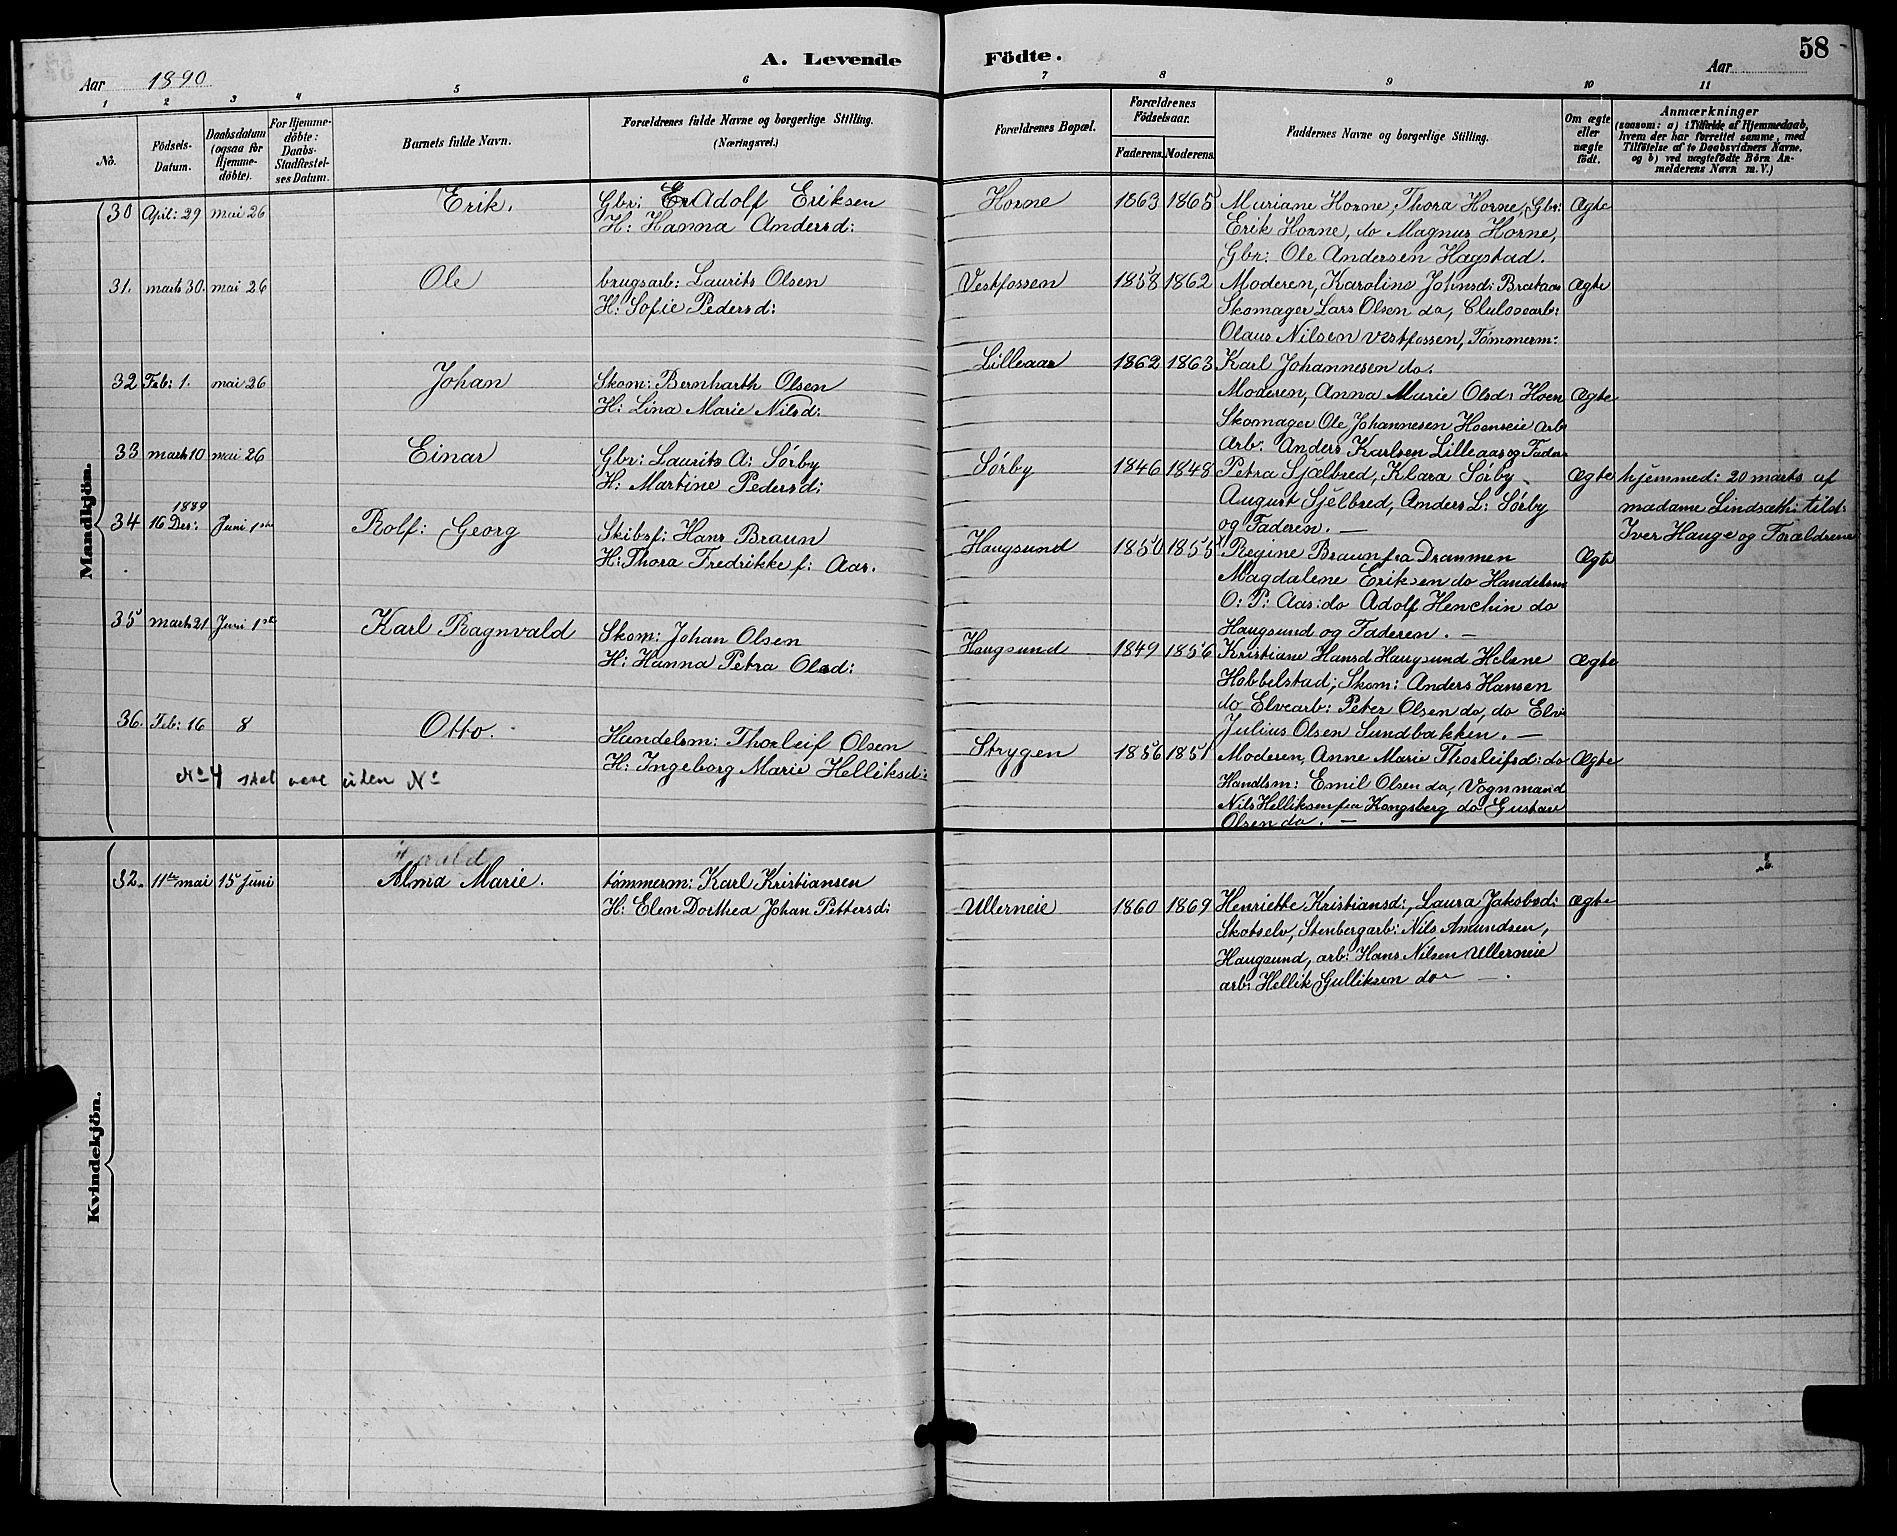 A. Levende Födte.
58
Aar 1890
Aar
1 2 3 4 5 6 7 8 9 10 11
No.
Födsels-Datum.
Daabsdatum (ogsaa for Hjemme-döbte).
For Hjemme-döbte: Daabs-Stadfæstel-ses Datum.
Barnets fulde Navn.
Forældrenes fulde Navne og borgerlige Stilling. (Næringsvei.)
Forældrenes Bopæl.
Forældrenes Födselsaar.
Faderens. Moderens.
Faddernes Navne og borgerlige Stilling.
Om ægte eller uægte födt.
Anmærkninger
(saasom: a) i Tilfælde af Hjemmedaab,
hvem der har forrettet samme, med
Tilföielse af to Daabsvidners Navne,
og b) ved uægtefödte Börn An-
melderens Navn m. V.)
Mandkjön.
30 April: 29 mai 26 Erik. Gbr: Er Adolf Eriksen
H: Hanna Andersd:
Horne 1863 1865 Mariane Horne, Thora Horne, Gbr: Ægte
Erik Horne, do Magnus Horne,
Gbr: Ole Andersen Hagstad.
31. marts 30. mai 26 Ole brugsarb: Laurits Olsen
H: Sofie Pedersd:
Vestfossen 1858 1862 Moderen, Karoline Johnsd: Brataas Ægte
Skomager Lars Olsen do, Clulosearb:
Olaus Nilsen Vestfossen, Tømmerm:
Karl Johannesen do.
32 Feb: 1. mai 26 Johan Skom: Bernharth Olsen
H: Lina Marie Nilsd:
Lilleaas 1862 1863
Moderen, Anna Marie Olsd: Hoen Ægte
Skomager Ole Johannesen Hoenseie arb
Arb: Anders Karlsen Lilleaas og Fader
33 marts 10 mai 26 Einar Gbr: Laurits A: Sørby
H: Martine Pedersd:
Sørby 1846 1848 Petra Sjælbred, Klara Sørby Ægte hjemmed: 20 marts af
August Sjelbred, Anders L: Sørby madame Lindsæth: tilst:
og Faderen. — Iver Hauge og Forældrene
34 1889 16 Des: Juni 1ste Rolf: Georg Skibsf: Hans Braun
H: Thora Fredrikke f: Aas.
Haugsund 1850 1855 Regine Braun fra Drammen Ægte
Magdalene Eriksen do Handelsm
O: P: Aas: do Adolf Henchin do
Haugsund og Faderen. —
35 marts 21 Juni 1ste Karl Ragnvald Skom: Johan Olsen
H: Hanna Petra Olsd:
Haugsund 1849 1856 Kristiane Hansd Haugsund Helene Ægte
Hobbelstad; Skom: Anders Hansen
do Elvearb: Peter Olsen do, do Elve
Julius Olsen Sundbakken. —
36. Feb: 16 8 Otto. Handelsm: Thorleif Olsen
H: Ingeborg Marie Helliksd:
Strygen 1856 1851 Moderen, Anne Marie Thorleifsd: do Ægte
Handlsm: Emil Olsen do, Vognmand
Nils Helliksen fra Kongsberg do Gustav
Olsen do. —
No 4 skal være uden No
Kvindekjön.
32. 11te mai 15 Juni Alma Marie. tømmerm: Karl Kristiansen
H: Elen Dorthea Johan Pettersd:
Ullerneie 1860 1869 Henriette Kristiansd:, Laura Jakobsd: Ægte
Skotselv, Stenbergarb: Nils Amundsen,
Haugsund, arb: Hans Nilsen Ullerneie
arb: Hellik Gulliksen do